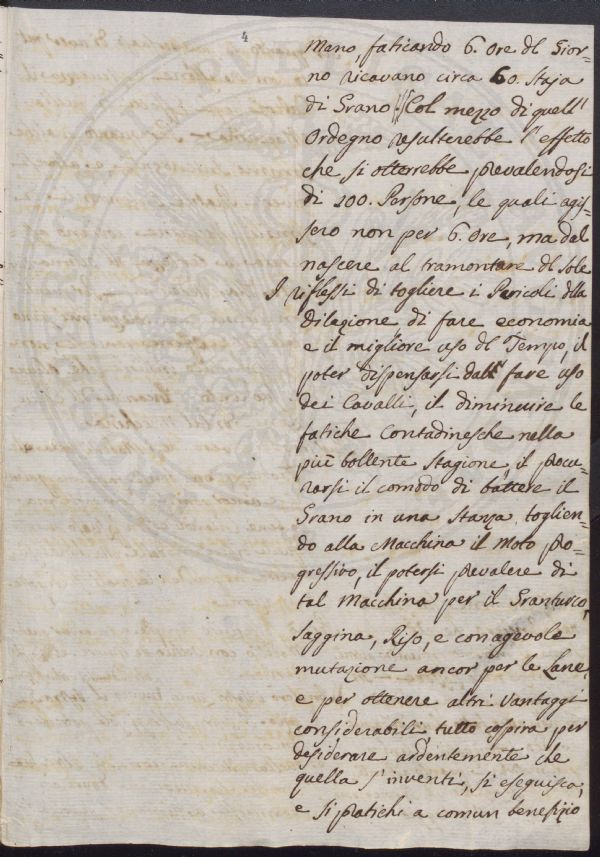 4
Mano, faticando 6. Ore dl Gior-
no ricavano circa 60. Staja
di Grano. Col mezzo di quell'
Ordegno resulterebbe l'effetto
che si otterrebbe prevalendosi
di 100. Persone, le quali agis=
sero non per 6. Ore, ma dal
nascere al tramontare dl Sole
I riflessi di togliere i Pericoli dlla
dilazione di fare economia
e il migliore uso dl Tempo, il
poter dispensarsi dall' fare uso
dei Cavalli, il diminuire le
fatiche Contadinesche nella
più bollente Stagione, il procu-
rarsi il comodo di battere il
Grano in una Stanza toglien-
do alla Macchina il Moto pro-
gressivo, il potersi prevalere di
tal Macchina per il Granturco,
Saggina, Riso, e con agevole
mutazione ancor per le Lane,
e per ottenere altri Vantaggi
considerabili, tutto cospira per
desiderare ardentemente che
quella s'inventi, si eseguisca,
e si pratichi a comun benefizio